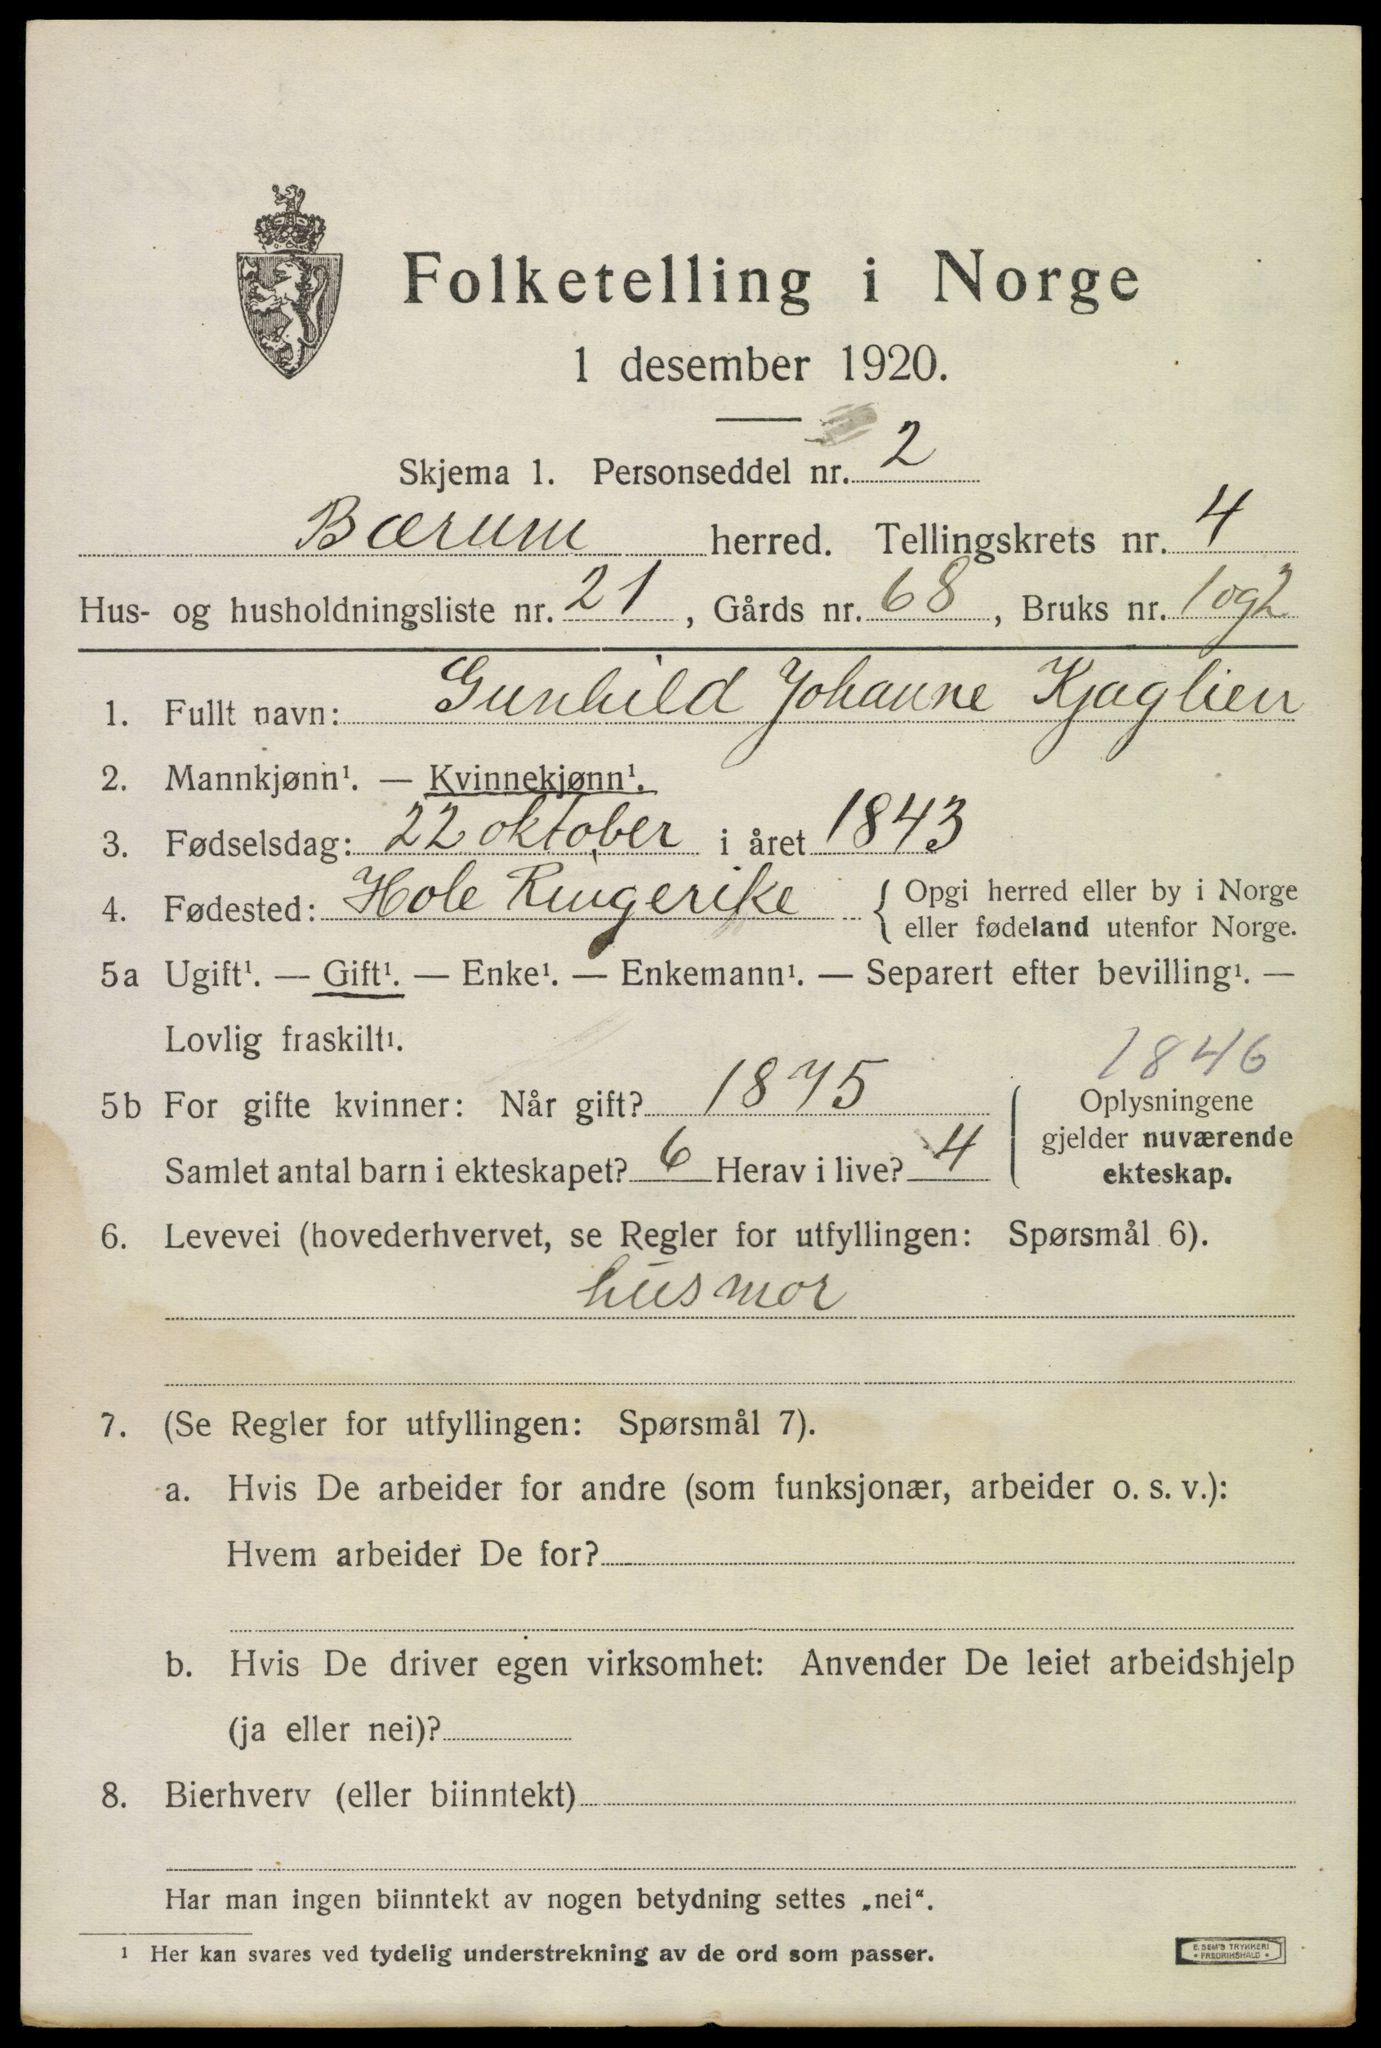 Folketelling i Norge
1 desember 1920.
Skjema 1. Personseddel nr. 2
Bærum herred. Tellingskrets nr. 4
Hus- og husholdningsliste nr. 21, Gårds nr. 68, Bruks nr. 1 og 2
1. Fullt navn: Gunhild Johanne Kjaglien
2. Mannkjønn¹. — Kvinnekjønn¹.
3. Fødselsdag: 22 oktober i året 1843
4. Fødested: Hole Ringerike { Opgi herred eller by i Norge
eller fødeland utenfor Norge.
5a Ugift¹. — Gift¹. — Enke¹. — Enkemann¹. — Separert efter bevilling¹. —
Lovlig fraskilt¹.
1846
5b For gifte kvinner: Når gift? 1875 Oplysningene
gjelder nuværende
Samlet antal barn i ekteskapet? 6 Herav i live? 4 ekteskap.
6. Levevei (hovederhvervet, se Regler for utfyllingen: Spørsmål 6).
husmor
7. (Se Regler for utfyllingen: Spørsmål 7).
a. Hvis De arbeider for andre (som funksjonær, arbeider o. s. v.):
Hvem arbeider De for?
b. Hvis De driver egen virksomhet: Anvender De leiet arbeidshjelp
(ja eller nei)?
8. Bierhverv (eller biinntekt)
Har man ingen biinntekt av nogen betydning settes „nei“.
¹ Her kan svares ved tydelig understrekning av de ord som passer.
E. SEM'S TRYKKERI
• FREDRIKSHALD •